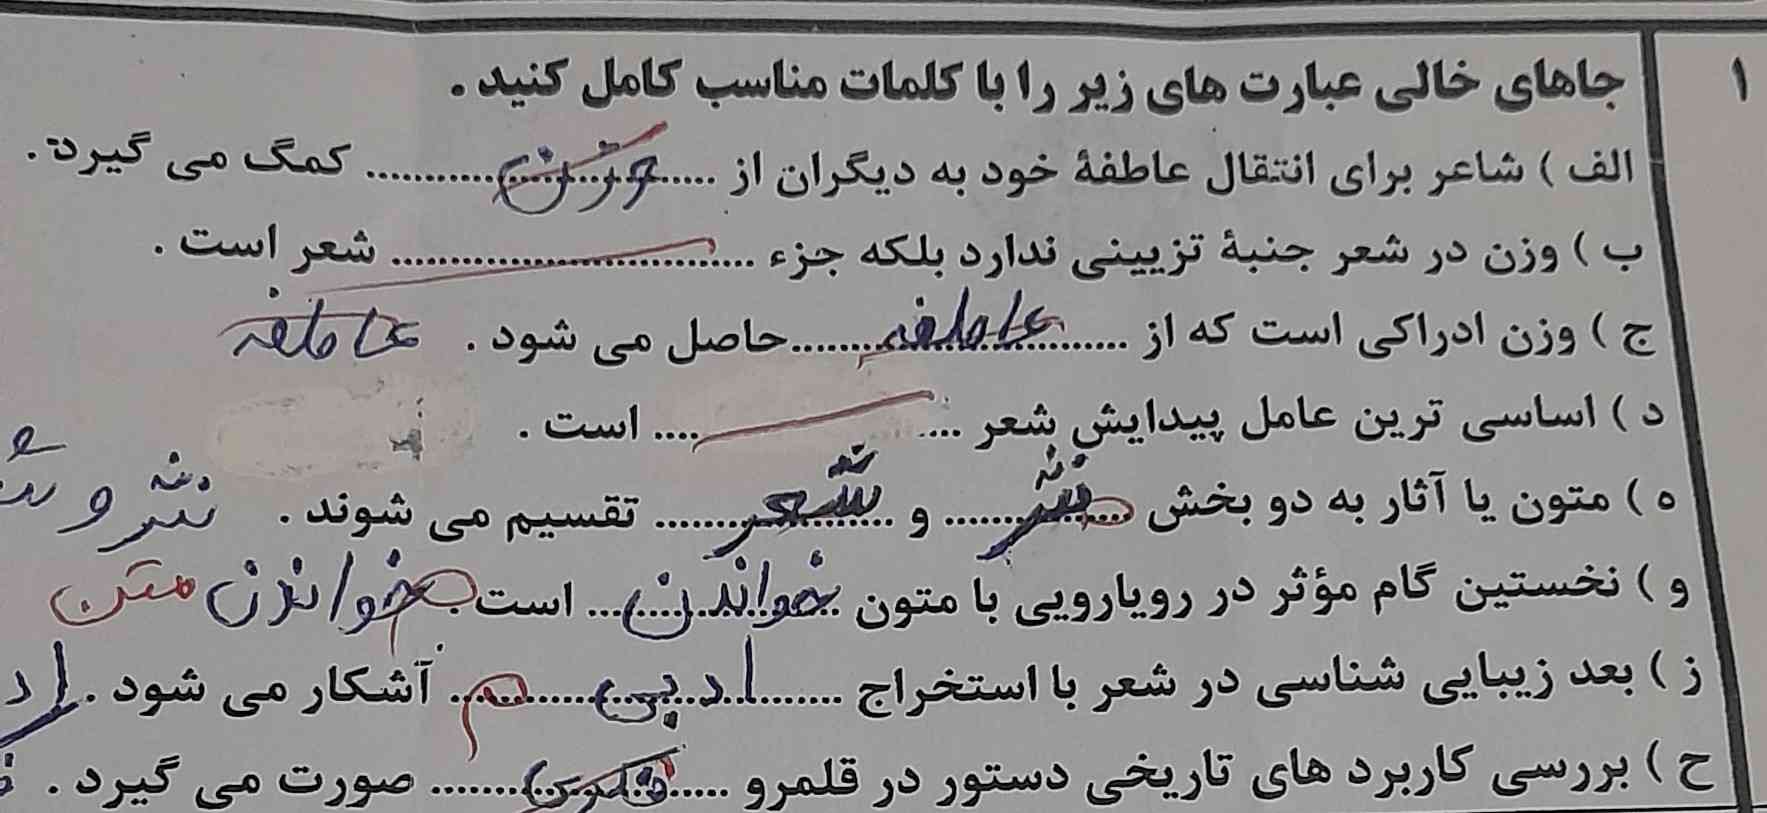 ۱ جاهای خالی عبارت های زیر را با کلمات مناسب کامل کنید .
الف ) شاعر برای انتقال عاطفهٔ خود به دیگران از ..... وزن ..... کمک می گیرد .
ب ) وزن در شعر جنبهٔ تزیینی ندارد بلکه جزء .......... شعر است .
ج ) وزن ادراکی است که از ..... عاطفه ..... حاصل می شود . عاطفه
د ) اساسی ترین عامل پیدایش شعر .... .... است .
ه ) متون یا آثار به دو بخش ..... نثر ..... و ..... شعر ..... تقسیم می شوند . نثر و
و ) نخستین گام مؤثر در رویارویی با متون ... خواندن ... است . خواندن متن
ز ) بعد زیبایی شناسی در شعر با استخراج ..... ادبی ..... آشکار می شود .
ح ) بررسی کاربرد های تاریخی دستور در قلمرو ..... ..... صورت می گیرد .